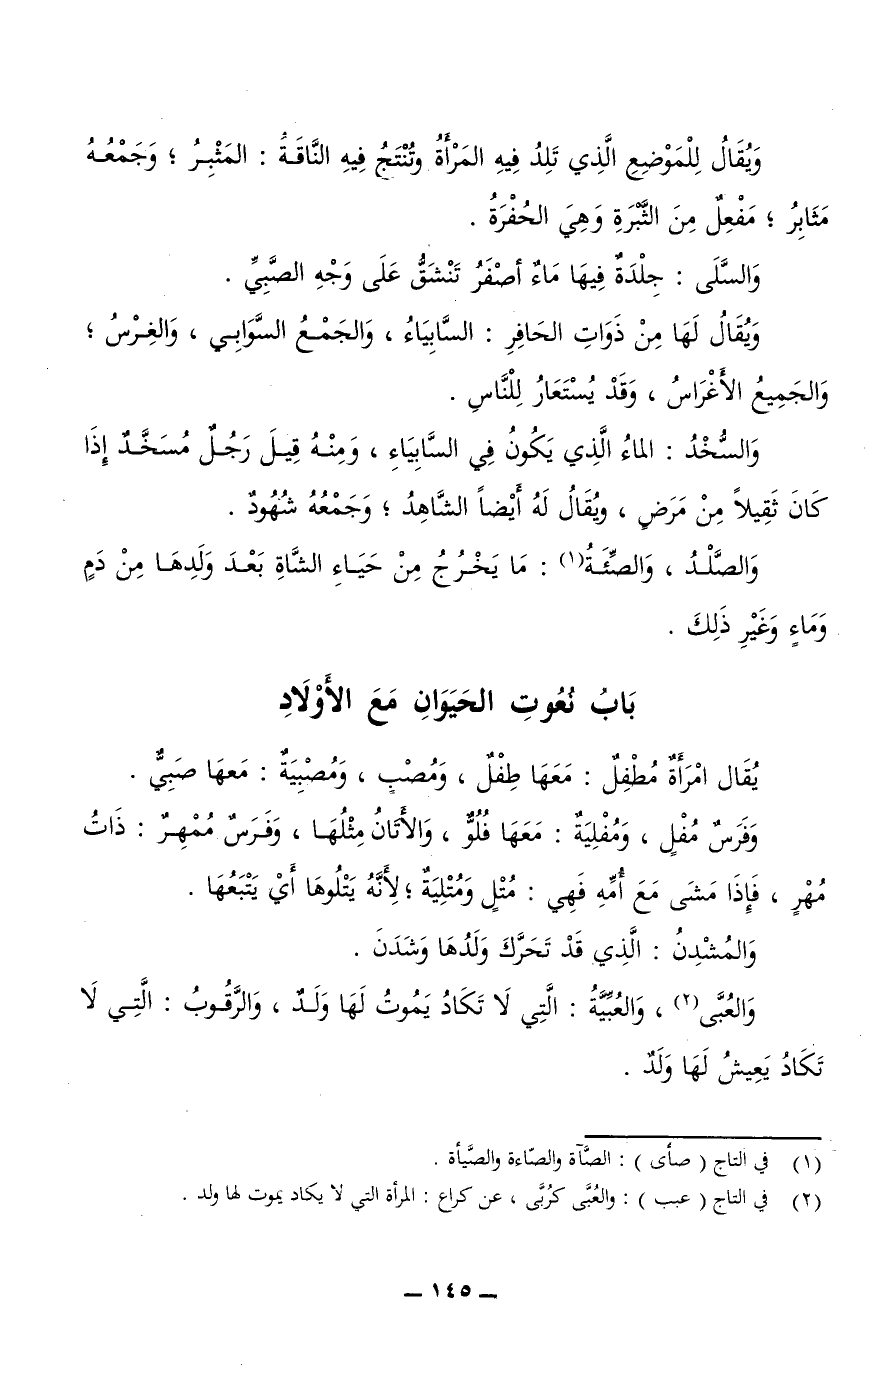 وَيُقَالُ لِلْمَوْضِعِ الَّذِي تَلِدُ فِيهِ المَرْأَةُ وتُنْتَجُ فِيهِ النَّاقَةُ : المَثْبِرُ ؛ وَجَمْعُهُ
مَثَابِرُ ؛ مَفْعِلٌ مِنَ الثَّبْرَةِ وَهِيَ الحُفْرَةُ .
وَالسَّلَى : جِلْدَةٌ فِيهَا مَاءٌ أصْفَرُ تَنْشَقُّ عَلَى وَجْهِ الصَّبِيِّ .
وَيُقَالُ لَهَا مِنْ ذَوَاتِ الحَافِرِ : السَّابِيَاءُ ، وَالجَمْعُ السَّوَابِي ، وَالغِرْسُ ؛
وَالجَمِيعُ الأَغْرَاسُ ، وَقَدْ يُسْتَعَارُ لِلْنَّاسِ .
وَالسُّخْدُ : الماءُ الَّذِي يَكُونُ فِي السَّابِيَاءِ ، وَمِنْهُ قِيلَ رَجُلٌ مُسَخَّدٌ إِذَا
كَانَ ثَقِيلاً مِنْ مَرَضٍ ، ويُقَالُ لَهُ أَيْضاً الشَّاهِدُ ؛ وَجَمْعُهُ شُهُودٌ .
وَالصَّلْدُ ، وَالصِّئَةُ(١) : مَا يَخْرُجُ مِنْ حَيَاءِ الشَّاةِ بَعْدَ وَلَدِهَا مِنْ دَمٍ
وَمَاءٍ وَغَيْرِ ذَلِكَ .
بَابُ نُعُوتِ الحَيَوَانِ مَعَ الأَوْلَادِ
يُقَال امْرَأَةٌ مُطْفِلٌ : مَعَهَا طِفْلٌ ، وَمُصْبٍ ، وَمُصْبِيَةٌ : مَعهَا صَبِيٌّ .
وَفَرَسٌ مُفْلٍ ، وَمُفْلِيَةٌ : مَعَهَا فُلُوٌّ ، وَالأَتَانُ مِثْلُهَا ، وَفَرَسٌ مُمْهِرٌ : ذَاتُ
مُهْرٍ ، فَإِذَا مَشَى مَعَ أُمِّهِ فَهِي : مُتْلٍ وَمُتْلِيَةٌ ؛ لِأَنَّهُ يَتْلُوهَا أَيْ يَتْبَعُهَا .
وَالمُشْدِنُ : الَّذِي قَدْ تَحَرَّكَ وَلَدُهَا وَشَدَنَ .
وَالعُبَّى(٢) ، وَالعُبِّيَّةُ : الَّتِي لَا تَكَادُ يَمُوتُ لَهَا وَلَدٌ ، وَالرَّقُوبُ : الَّتِي لَا
تَكَادُ يَعِيشُ لَهَا وَلَدٌ .
(١) في التاج ( صأى ) : الصَّآة والصَّاءة والصَّيأة .
(٢) في التاج ( عبب ) : والعُبَّى كَرُبَّى ، عن كراع : المرأة التي لا يكاد يموت لها ولد .
ــ ١٤٥ ــ